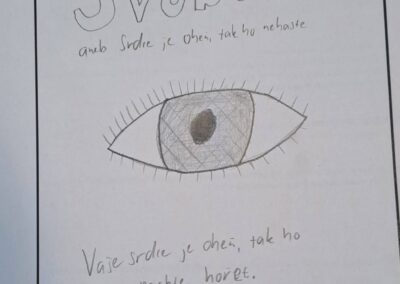 aneb Srdce je oheň, tak ho nehaste
Vaše srdce je oheň, tak ho
hořet.